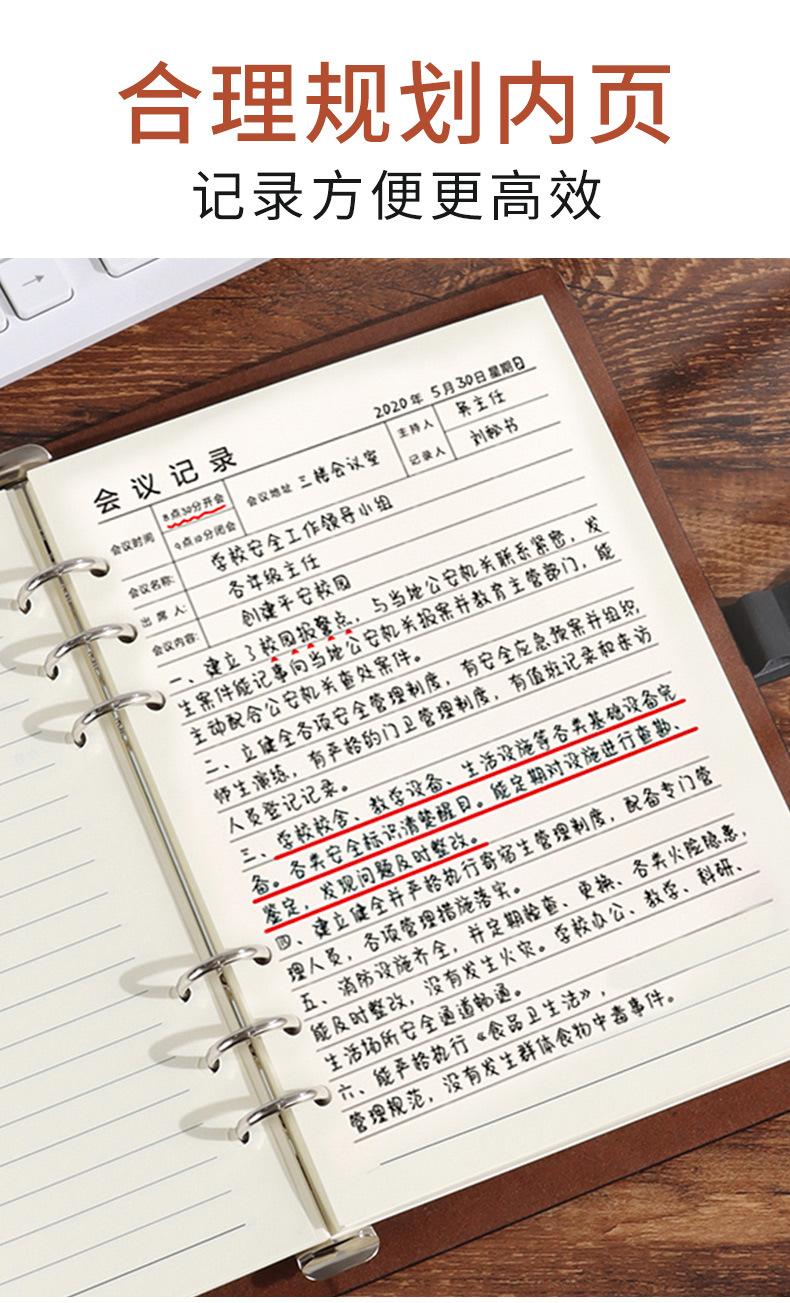 合理规划内页
记录方便更高效
2020年 5月30日星期日
会议记录
会议时间 8点30分开会 会议地址 三楼会议室 主持人 吴主任
9点10分闭会 记录人 刘秘书
会议名称: 学校安全工作领导小组
出席人: 各年级主任
会议内容: 创建平安校园
一、建立了校园报警点,与当地公安机关联系紧密,发
生案件能记事向当地公安机关报案并教育主管部门,能
主动配合公安机关查处案件。
二、立健全各项安全管理制度,有安全应急预案并组织
师生演练,有严格的门卫管理制度,有值班记录和来访
人员登记记录。
三、学校校舍、教学设备、生活设施等各类基础设备完
备。各类安全标识清楚醒目。能定期对设施进行查勘、
鉴定,发现问题及时整改。
四、建立健全并严格执行寄宿生管理制度,配备专门管
理人员,各项管理措施落实。
五、消防设施齐全,并定期检查、更换、各类火险隐患,
能及时整改,没有发生火灾。学校办公、教学、科研、
生活场所安全通道畅通。
六、能严格执行《食品卫生法》,
管理规范,没有发生群体食物中毒事件。